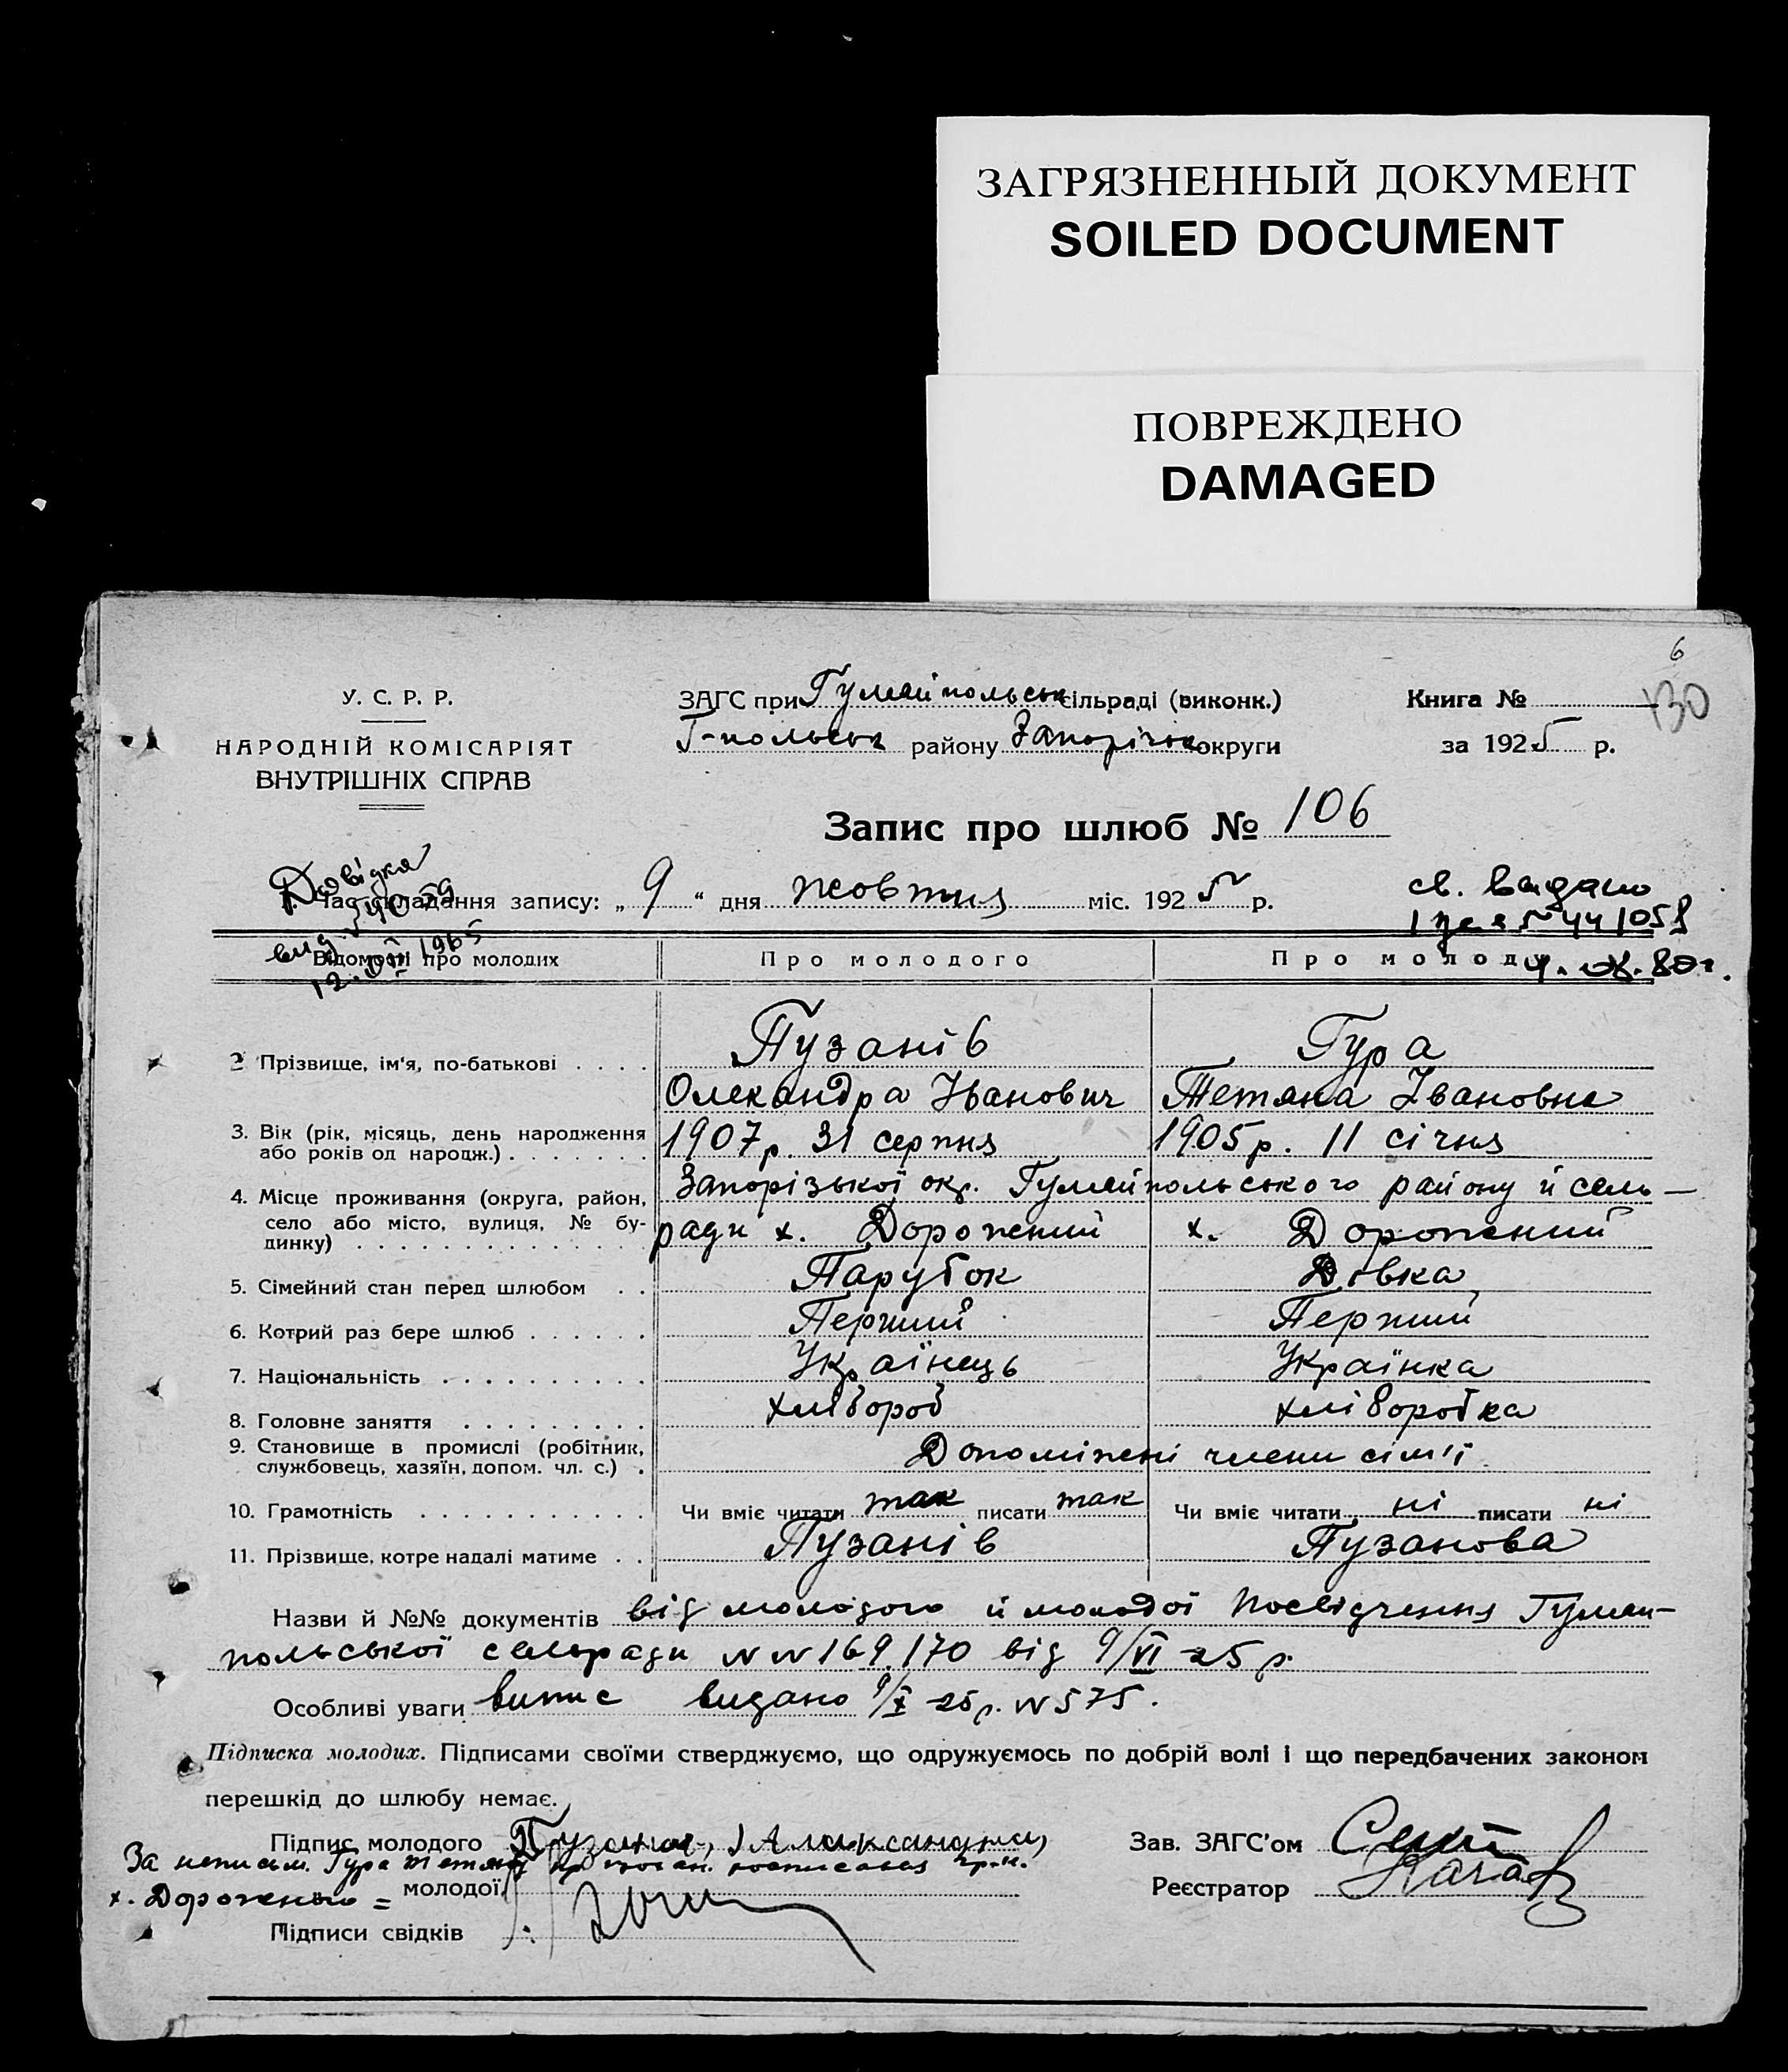 ЗАГРЯЗНЕННЫЙ ДОКУМЕНТ
SOILED DOCUMENT
ПОВРЕЖДЕНО
DAMAGED
6
130
У. С. Р. Р.
НАРОДНІЙ КОМІСАРІЯТ
ВНУТРІШНІХ СПРАВ
ЗАГС при Гуляйпольськ сільраді (виконк.)
Г-польськ району Запорізьк округи
Книга №
за 1925 р.
Запис про шлюб № 106
Довідка
1. Час складання запису: „ 9 “ дня жовтня міс. 1925 р.
св. видано
12.VII 1965
Відомості про молодих
Про молодого
Про молоду
2 Прізвище, ім'я, по-батькові . . . . Пузанів Гура
Олександра Іванович Тетяна Івановна
3. Вік (рік, місяць, день народження
або років од народж.) . . . . . . . 1907 р. 31 серпня 1905 р. 11 січня
4. Місце проживання (округа, район,
село або місто, вулиця, № бу-
динку) . . . . . . . . . . . . . .
Запорізької окр. Гуляйпольського району й сель-
ради х. Дорожений х. Дорожений
5. Сімейний стан перед шлюбом . . Парубок Дівка
6. Котрий раз бере шлюб . . . . . . Перший Перший
7. Національність . . . . . . . . . . Українець Українка
8. Головне заняття . . . . . . . . . хлібороб хліборобка
9. Становище в промислі (робітник,
службовець, хазяїн, допом. чл. с.) . Допоміжні члени сім'ї
10. Грамотність . . . . . . . . . . . Чи вміє читати так писати так Чи вміє читати ні писати ні
11. Прізвище, котре надалі матиме . . Пузанів Пузанова
Назви й №№ документів від молодого й молодої посвідчення Гуляй-
польської сельради NN 169.170 від 9/VI 25 р.
Особливі уваги випис видано 9/X 25 р. N 575.
Підписка молодих. Підписами своїми стверджуємо, що одружуємось по добрій волі і що передбачених законом
перешкід до шлюбу немає.
Підпис молодого
За неписьм. Гура Тетяну
х. Дорожений = молодої
Підписи свідків
Зав. ЗАГС'ом
Реєстратор